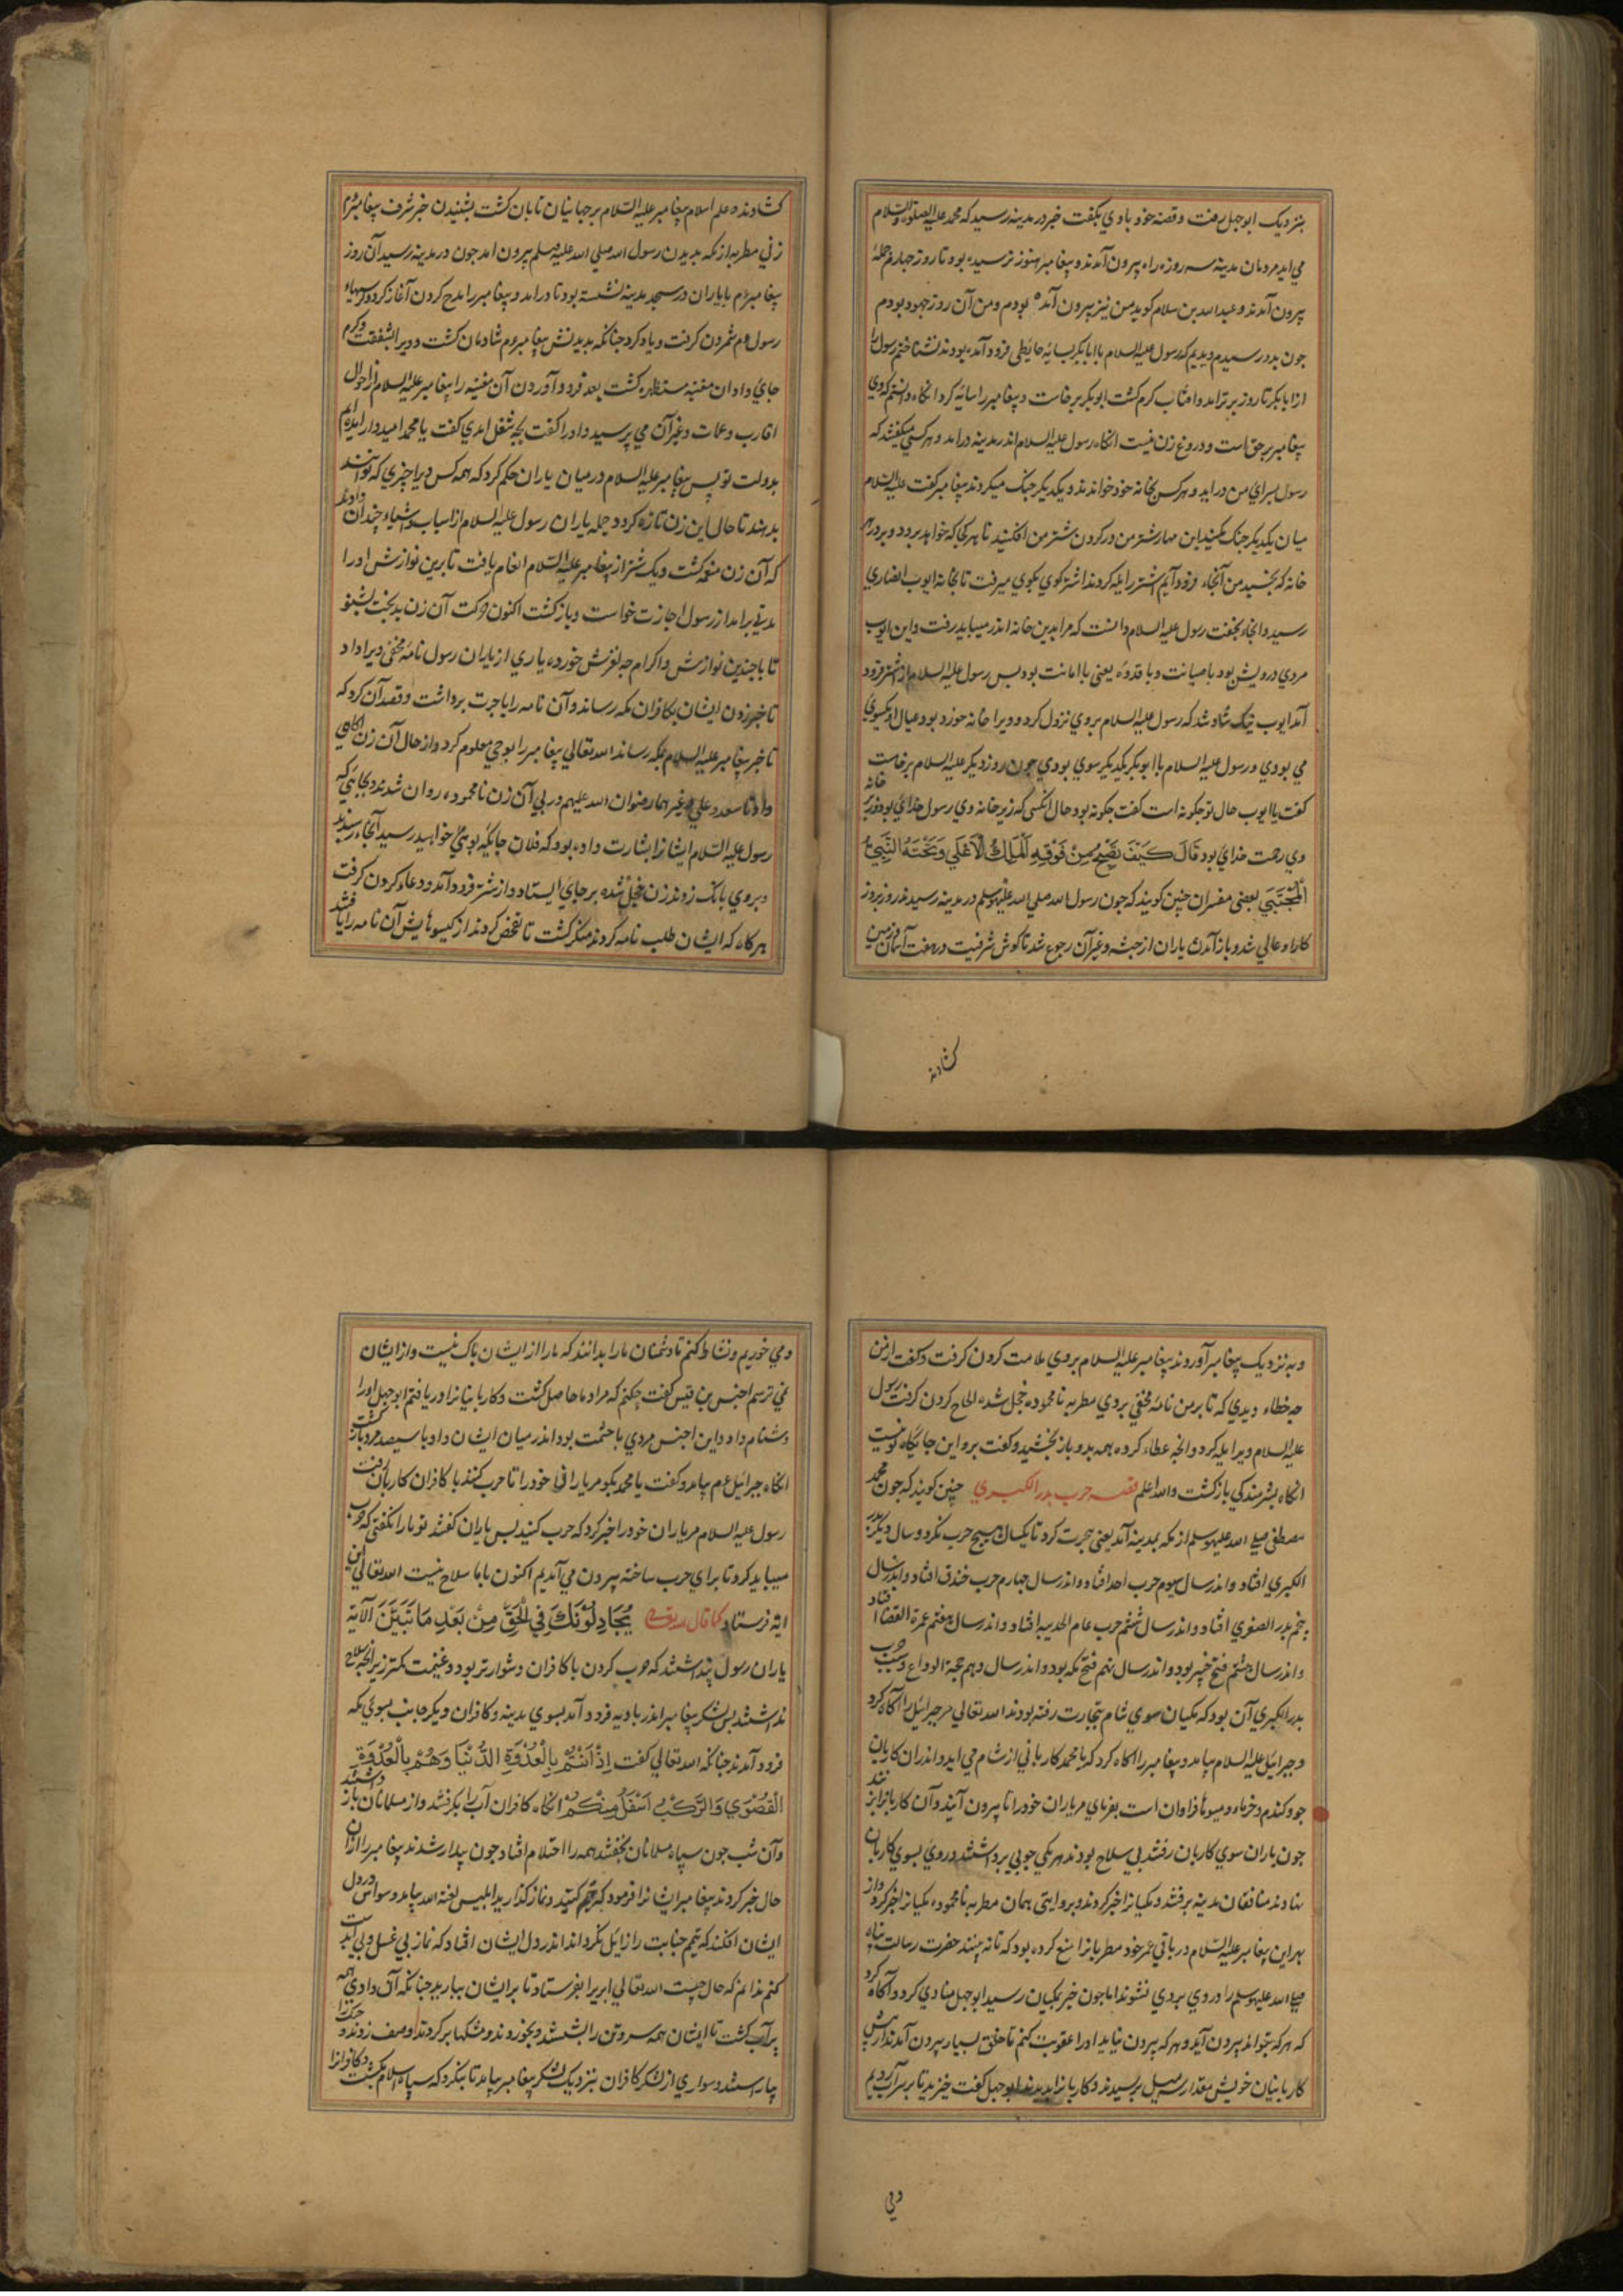 بنزدیک ابوجهل رفت وقصه خود باوی بکفت خبر در مدینه رسید که محمد علیه الصلوة والسلام
می اید مردمان مدینه سه روزه راه بیرون آمدند و پیغامبر هنوز نرسیده بود تا روز چهارم جمله
بیرون آمدند و عبدالله بن سلام کوید من نیز بیرون آمده بودم و من آن روز جهود بودم
جون بدو رسیدم دیدیم که رسول علیه السلام با ابابکر بسایه حایطی فرود آمده بودند نشناختم رسول را
از ابابکر تا روز برتر امد و افتاب کرم کشت ابوبکر برخاست و پیغامبر را سایه کرد انکاه دانستم که وی
پیغامبر برحق است و دروغ زن نیست انکاه رسول علیه السلام اندر مدینه درامد و هر کسی میکفتند که
رسول بسرای من دراید و هر کس بخانه خود خواندند و یکدیکر جنک میکردند پیغامبر کفت علیه السلام
میان یکدیکر جنک مکنید این مهار شتر من در کردن شتر من افکنید تا هر کجا که خواهد برود و بر در هر
خانه که بخسبد من آنجا فرود آیم اشتر را یله کردند اشتر کوی بکوی میرفت تا بخانه ایوب انصاری
رسید و انجا بخفت رسول علیه السلام دانست که مرا بدین خانه اندر میباید رفت و این ایوب
مردی درویش بود با صیانت و با قدوه یعنی با امانت بود بس رسول علیه السلام از اشتر فرود
آمد ایوب نیک شاد شد که رسول علیه السلام بروی نزول کرد و ویرا خانه خورد بود عیال او یکسوی
می بودی و رسول علیه السلام با ابوبکر یکدیکر سوی بودی جون روز دیکر علیه السلام برخاست
کفت یا ایوب حال تو جکونه است کفت جکونه بود حال انکس که زیر خانه وی رسول خدای بود و زبر خانه
وی رحمت خدای بود قَالَ كَيْفَ يَصْبَحُ مِنْ فَوْقِهِ الْمَلِكُ الْأَعْلَى وَتَحْتَهُ النَّبِيُّ
الْمُجْتَبَى بعضی مفسران چنین کویند که جون رسول الله صلی الله علیه وسلم در مدینه رسید روز بروز
کار او عالی شد و باز آمدن یاران از حبشه و غیر آن رجوع شد تا کوش شرفیت در هفت آسمان و زمین
کشادند
کشادند و علم اسلام پیغامبر علیه السلام بر جهانیان تابان کشت بشنیدن خبر شرف پیغامبر عم
زنی مطربه از مکه بدیدن رسول الله صلی الله علیه وسلم بیرون امد جون در مدینه رسید آن روز
پیغامبر عم با یاران در مسجد مدینه نشسته بود تا درامد و پیغامبر را مدح کردن آغاز کرد و کرمیهاء
رسول عم شمردن کرفت و یاد کرد جنانکه بدیدنش پیغامبر عم شادمان کشت و ویرا بشفقت و کرم
جای داد ان مغنیه مستظهره کشت بعد فرود آوردن آن مغنیه را پیغامبر علیه السلام از احوال
اقارب و عمات و غیر آن می پرسید و او را کفت بچه شغل امدی کفت یا محمد امیدوار امده ام
بدولت تو پس پیغامبر علیه السلام در میان یاران حکم کرد که همه کس ویرا چیزی که توانند
بدهند تا حال این زن تازه کردد جمله یاران رسول علیه السلام از اسباب و اشیاء چندان دادند
که آن زن منعمه کشت و یک شتر از پیغامبر علیه السلام انعام یافت تا برین نوازش او را
مدتی برامد از رسول اجازت خواست و باز کشت اکنون حرکت آن زن بدبخت بشنو
تا با چندین نوازش و اکرام چه لغزش خورد یاری از یاران رسول نامه مخفی ویرا داد
تا خبر زدن ایشان بکافران مکه رساند و آن نامه را با جرت برداشت و قصد آن کرد که
تا خبر پیغامبر علیه السلام بمکه رساند الله تعالی پیغامبر را بوحی معلوم کرد و از حال آن زن اکاهی
داد تا سعد و علی و غیر هما رضوان الله علیهم در پی آن زن نامحموده روان شدند و بجایی که
رسول علیه السلام ایشانرا بشارت داده بود که فلان جایکه بوی خواهید رسید آنجا رسیدند
و بروی بانک زدند زن خجل شده بر جای ایستاد و از شتر فرود آمد و دعاء کردن کرفت
هر کاه که ایشان طلب نامه کردند منکر کشت تا تفحص کردند از کیسوهایش آن نامه را یافتند
و به نزدیک پیغامبر آوردند پیغامبر علیه السلام بروی ملامت کردن کرفت و کفت از من
چه خطاء دیدی که تا بر من نامه مخفی بردی مطربه نامحموده خجل شده الحاح کردن کرفت رسول
علیه السلام ویرا یله کرد و انچه عطاء کرده بهمه بدو باز بخشید و کفت برو این جایکاه تو نیست
انکاه بشرمندکی باز کشت والله اعلم قصه حرب بدر الکبری چنین کویند که جون محمد
مصطفی صلی الله علیه وسلم از مکه بمدینه آمد یعنی هجرت کرد تا یکسال هیچ حرب نکرد و سال دیکر بدر
الکبری افتاد و اندر سال سیوم حرب احد افتاد و اندر سال چهارم حرب خندق افتاد و اندر سال
پنجم بدر الصغری افتاد و اندر سال ششم حرب عام الحدیبیه افتاد و اندر سال هفتم عمرة القضا افتاد
و اندر سال هشتم فتح خیبر بود و اندر سال نهم فتح مکه بود و اندر سال دهم حجة الوداع و سبب حرب
بدر الکبری آن بود که مکیان سوی شام بتجارت رفته بودند الله تعالی مر جبرائیل را آکاه کرد
و جبرائیل علیه السلام بیامد و پیغامبر را اکاه کرد که یا محمد کاربانی از شام می اید و اندران کاربان
جو و کندم و خرماء و میوها فراوان است بفرمای مر یاران خود را تا بیرون آیند و آن کاربانرا بزنند
جون یاران سوی کاربان رفتند بی سلاح بودند هر یکی چوبی برداشتند و روی بسوی کاربان
نهادند منافقان مدینه برفتند و مکیانرا خبر کردند و بروایتی همان مطربه نامحموده مکیانرا خبر کرد و از
بهر این پیغامبر علیه السلام در باقی عمر خود مطربانرا منع کرده بود که تا نه بینند حضرت رسالت پناه
صلی الله علیه وسلم را و روی بروی نشوند اما جون خبر بمکیان رسید ابوجهل منادی کرد و آکاه کرد
که هر که بتواند بیرون آید و هر که بیرون نیاید او را عقوبت کنم تا خلق بسیار بیرون آمدند از پیش
کاربانیان خویش مقدار سه میل برسیدند و کاربانرا بدیدند ابوجهل کفت خیزید تا بر سر آب رویم
ومی
و می خوریم و نشاط کنم تا دشمنان ما را بدانند که ما را از ایشان باک نیست و از ایشان
نمی ترسم اخنس بن قیس کفت چکنم که مراد ما حاصل کشت و کاربانیانرا دریافتم ابوجهل او را
دشنام داد و این اخنس مردی با حشمت بود اندر میان ایشان و او با سیصد مرد باز کشت
انکاه جبرائیل عم بیامد و کفت یا محمد بکو مر یارانی خود را تا حرب کنند با کافران کاربان رفت
رسول علیه السلام مر یاران خود را خبر کرد که حرب کنید بس یاران کفتند تو ما را نکفتی که حرب
میباید کرد تا برای حرب ساخته بیرون می آمدیم اکنون با ما سلاح نیست الله تعالی این
ایة فرستاد کما قال الله تعالی يُجَادِلُونَكَ فِي الْحَقِّ مِنْ بَعْدِ مَا تَبَيَّنَ الْآيَة
یاران رسول پنداشتند که حرب کردن با کافران دشوارتر بود و غنیمت بکمتر زیرا نچه سلاح
نداشتند بس لشکر پیغامبر اندر بادیه فرود آمد بسوی مدینه و کافران دیکر جانب بسوی مکه
فرود آمدند چنانکه الله تعالی کفت إِذْ أَنْتُمْ بِالْعُدْوَةِ الدُّنْيَا وَهُمْ بِالْعُدْوَةِ
الْقُصْوَى وَالرَّكْبُ أَسْفَلَ مِنْكُمْ انکاه کافران آب را بکرفتند و از مسلمانان باز داشتند
و آن شب جون سپاه مسلمانان بخفتند همه را احتلام افتاد جون بیدار شدند پیغامبر را ازان
حال خبر کردند پیغامبر ایشانرا فرمود که تیمم کنید و نماز کذارید ابلیس لعنه الله بیامد و وسواس در دل
ایشان افکند که تیمم جنابت را زایل نکرداند اندر دل ایشان افتاد که نماز بی غسل و بی آبدست
کنم ندانم که حال چیست الله تعالی ابر را بفرستاد تا بر ایشان ببارید چنانکه آن وادی همه
پر آب کشت تا ایشان همه سر و تن را بشستند و بخوردند و مشکها پر کردند و صف زدند و جنک را
بیاراستند و سواری از لشکر کافران بنزدیک لشکر پیغامبر بیامد تا بنکرد که سپاه اسلام و کافرانرا